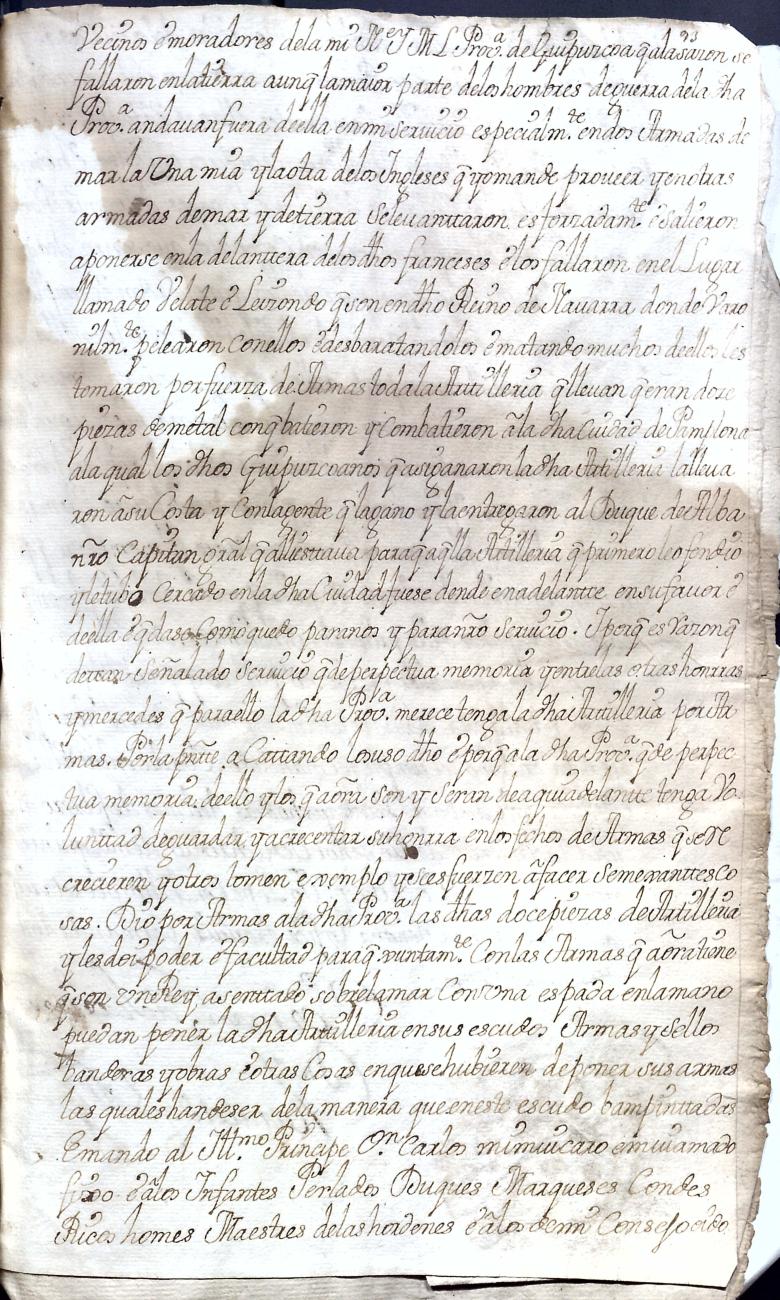 Vecinos e moradores dela mi N. e y M. L. Prov.a de Guipuzcoa q alasazon se
fallaron enlatierra aunq lamaior parte delos hombres deguerra dela dha
Prov.a andavan fuera deella enmi servicio especialm.te endos Armadas de
mar la Una mia y la otra delos Ingleses q yo mande proveer y enotras
armadas demar y detierra selevanttaron esforzadam.te e salieron
aponerse enla delanttera delos dhos franceses e los fallaron en el Lugar
llamado Velate e Leizondo q son en dho Reino de Navarra donde Varo
nilm.te pelearon con ellos e desbaratandolos e matando muchos deellos les
tomaron por fuerza de Armas toda la Artilleria q llevan q eran doze
piezas de metal con q batieron y combatieron a la dha Ciudad de Pamplona
ala qual los dhos Guipuzcoanos q asi ganaron la dha Artilleria la lleva
ron a su Costa y Con la gente q la gano y la entregaron al Duque de Alba
nro Capitan gral q alli esttava para q aqlla Artilleria q primero le ofendio
y le tubo Cercado en la dha Ciudad fuese dende en adelantte en su favor e
de ella e q dase como quedo para nos y para nro servicio. I porq es razon q
de tan Señalado Servicio q de perpetua memoria y entre las otras honrras
y mercedes q para ello la dha Prov.a merece tenga la dha Artilleria por Ar
mas. Por la pntte a Cattando lo suso dho e porq a la dha Prov.a q de perpec
tua memoria de ello y los q aora son y seran de aqui adelantte tenga Vo
lunttad de guardar y acrecentar su honrra en los fechos de Armas q se re
crecieren y otros tomen exemplo y se esfuerzen a facer semexanttes co
sas. Dio por Armas a la dha Prov.a las dhas doce piezas de Artilleria
y les doi poder e facultad para q xuntam.te Con las Armas q aora tiene
q son Un Rey asenttado sobre la mar Con Una espada en la mano
puedan poner la dha Artilleria en sus escudos Armas y sellos
banderas y obras e otras Cosas en que se hubieren de poner sus armas
las quales han de ser de la manera que en este escudo ban pinttadas
E mando al Ill.mo Principe D.n Carlos mi mui caro e mui amado
fixo e a los Infantes Perlados Duques Marqueses Condes
Ricos homes Maestres de las hordenes e a los de mi Consejo oido